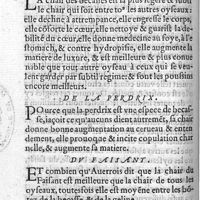 LA chair des becasses est la plus legere & subtile
le chair qui soit entre to⁹ les autres oyseaux:
elle decline à attrempance, elle engresse le corps,
elle cõforte le cœur, elle nettoye & guarist la debilité
du cœur, elle donne medecine au foye, à l'e
stomach, & contre hydropisie, elle augmente la
matiere de luxure, & est meilleure & plus conue
nable que tout autre oyseau à ceux qui se veu
lent garder par subtil regime: & sont les poussins
encore meilleurs.
DE LA PERDRIX.
POurce que la perdrix est vne espece de becas-
se, iaçoit ce qu'aucuns dient autrement, sa chair
donne bonne augmentation au cerueau & enten
dement, elle prouoque & incite copulation char
nelle, & augmente sa matiere.
DV FAISANT.
ET combien qu'Auerrois dit que la chair du
Faisant est meilleure que la chair de tous les
oyseaux, toutesfois elle est moyenne entre les bõ-
tez de la becasse & de la geline.